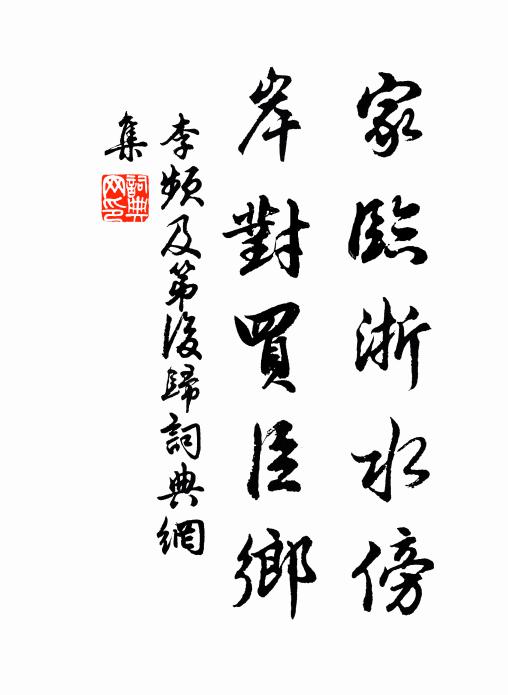 家臨浙水傍
岸對買臣鄉
李頻及第後歸詞典網
集
詞典
网印